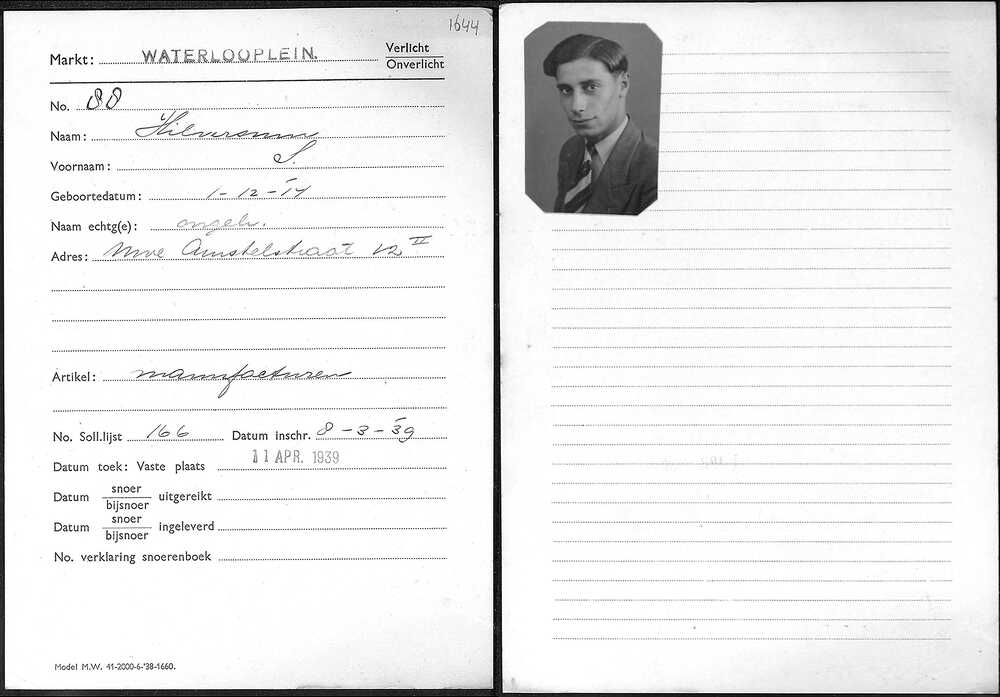 1644
Markt: WATERLOOPLEIN. Verlicht
Onverlicht
No. 88
Naam: Hilversum
Voornaam: S.
Geboortedatum: 1-12-'17
Naam echtg(e): ongeh.
Adres: Nwe Amstelstraat 12 II
Artikel: manufacturen
No. Soll.lijst 166 Datum inschr. 8-3-'39
Datum toek: Vaste plaats 11 APR. 1939
Datum snoer
bijsnoer uitgereikt
Datum snoer
bijsnoer ingeleverd
No. verklaring snoerenboek
Model M.W. 41-2000-6-'38-1660.